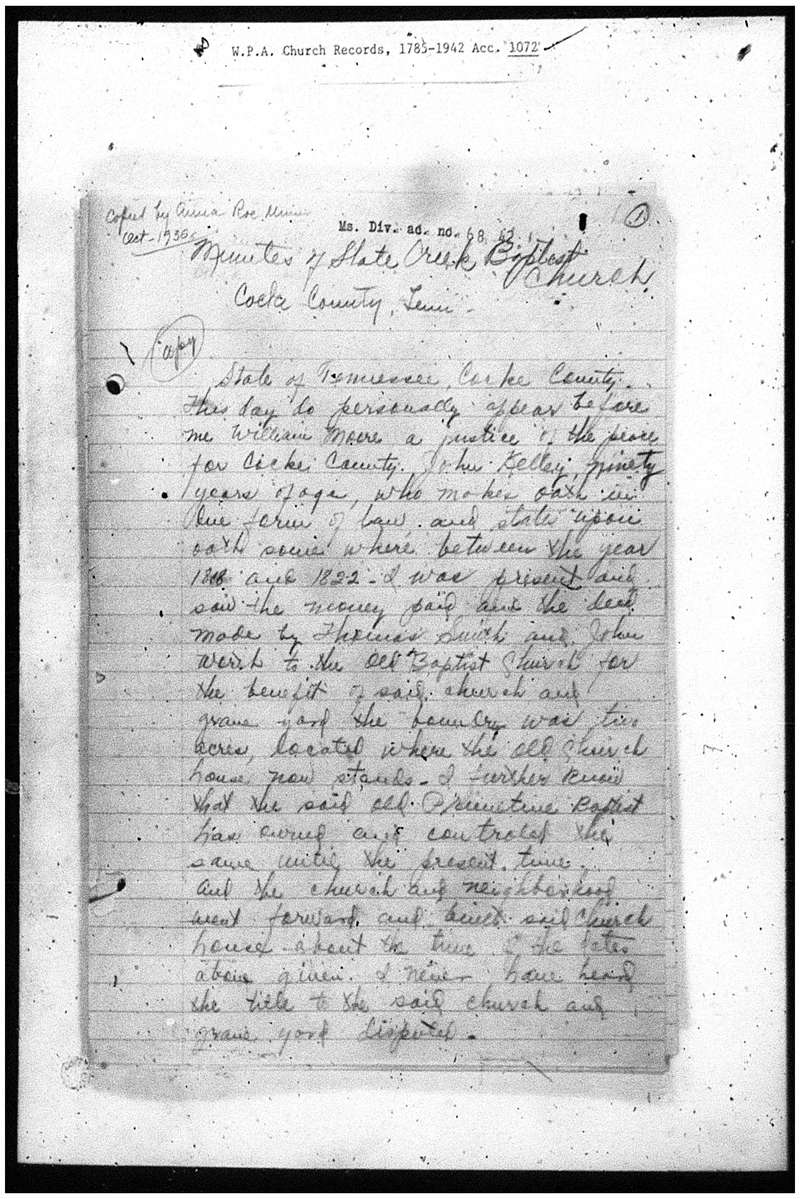 W.P.A. Church Records, 1785-1942 Acc. 1072
Copied by Anna Roe
Oct - 1936
Ms. Div. ad. no. 68, 62, 1
Minutes of Slate Creek Baptist
Church
Cocke County, Tenn -
Copy
State of Tennessee, Cocke County.
This day do personally appear before
me William Moore a justice of the peace
for Cocke County, John Kelley, ninety
years of age, who makes oath in
due form of law and states upon
oath some where between the year
1818 and 1822 - I was present and
saw the money paid and the deed
made by Thomas Smith and John
to the Old Baptist Church for
the benefit of said church and
grave yard the boundry was two
acres, located where the old Church
house now stands - I further know
that the said old Primetive Baptist
has owned and controled the
same until the present time.
and the church and neighborhood
went forward and built said Church
house about the time of the dates
above given. I never have heard
the title to the said church and
grave yard disputed.